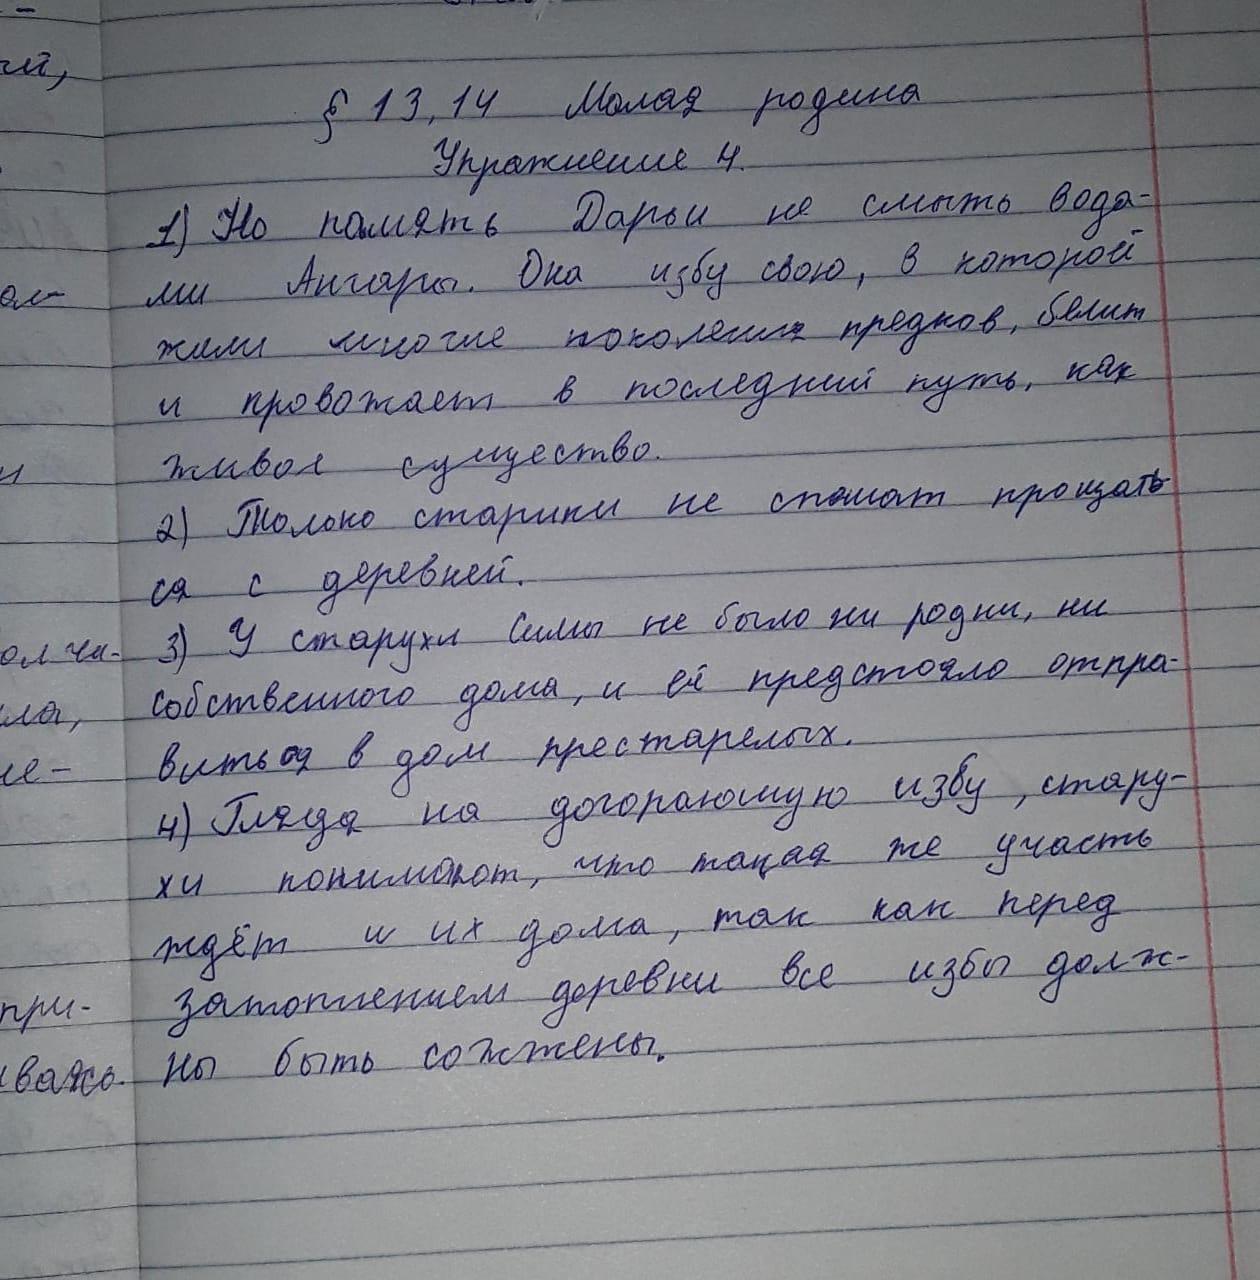 -
ый,
§ 13, 14 Малая родина
Упражнение 4.
1) Но память Дарьи не смыть вода-
ми Ангары. Она избу свою, в которой
жили многие поколения предков, белит
и провожает в последний путь, как
живое существо.
2) Только старики не спешат прощать
ся с деревней.
3) У старухи Симы не было ни родни, ни
собственного дома, и ей предстояло отпра-
виться в дом престарелых.
4) Глядя на догорающую избу, стару-
хи понимают, что такая же участь
ждёт и их дома, так как перед
затоплением деревни все избы долж-
ны быть сожжены.